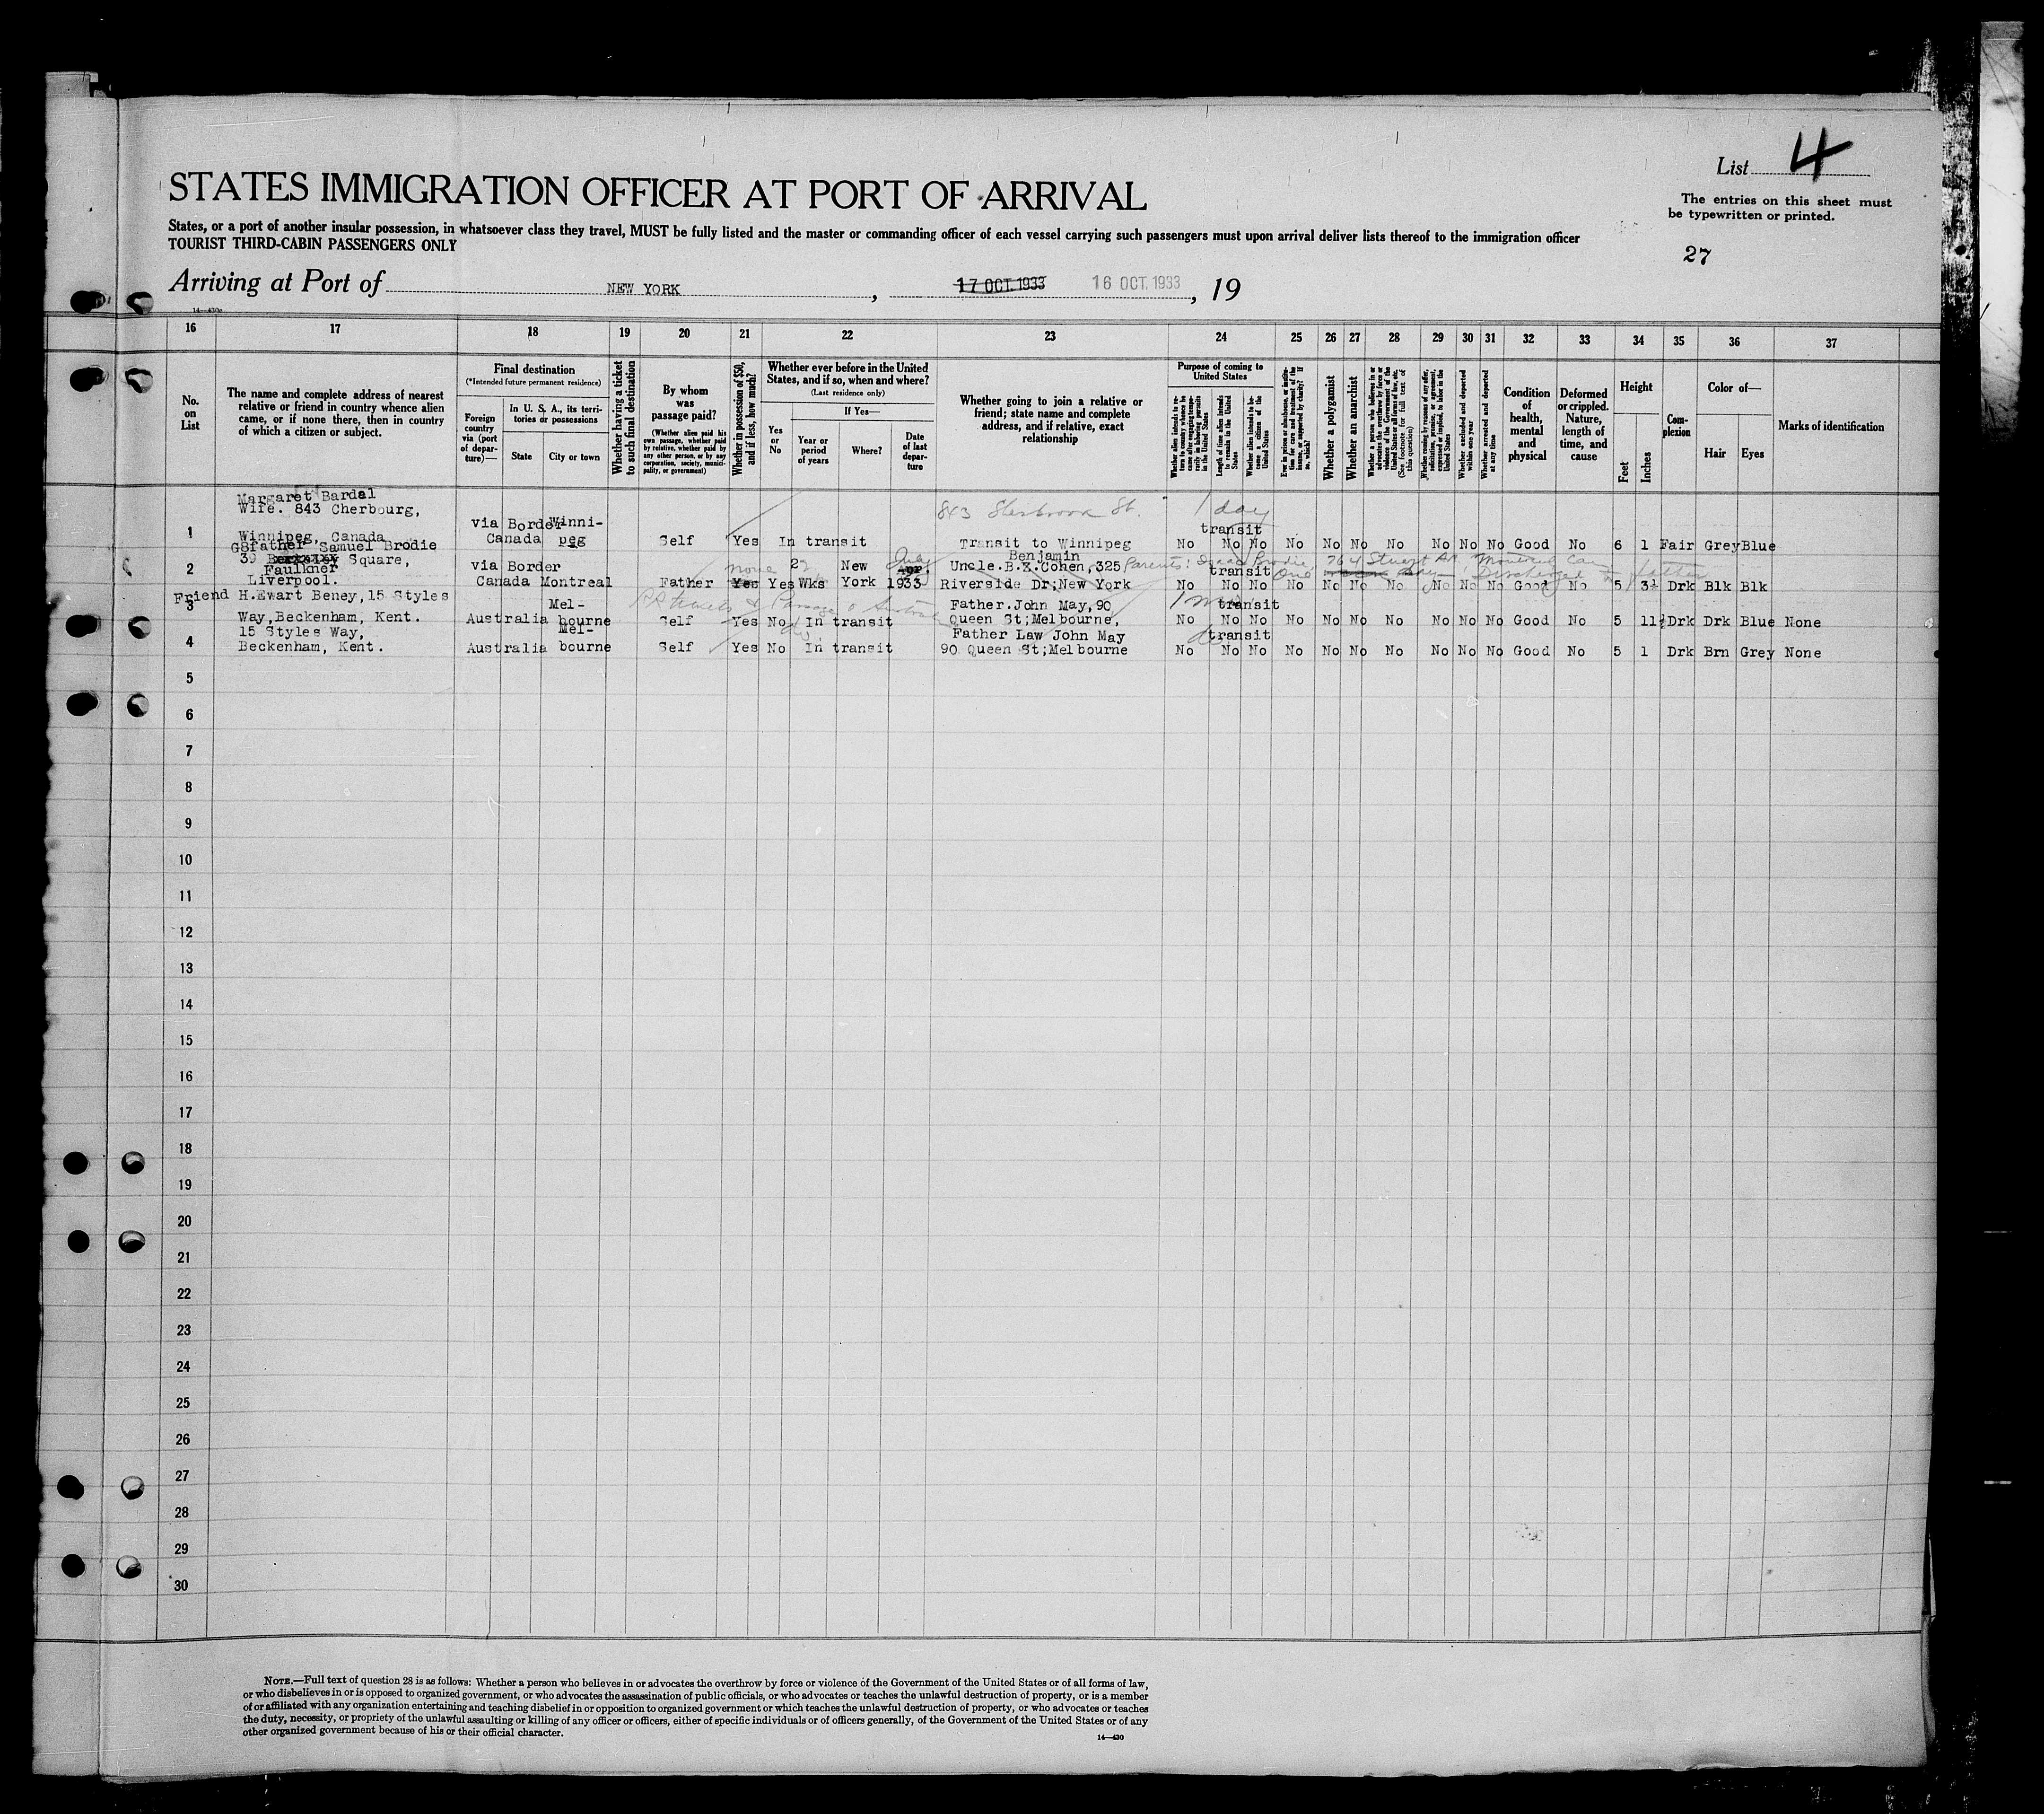 List 4
STATES IMMIGRATION OFFICER AT PORT OF ARRIVAL
The entries on this sheet must
be typewritten or printed.
States, or a port of another insular possession, in whatsoever class they travel, MUST be fully listed and the master or commanding officer of each vessel carrying such passengers must upon arrival deliver lists thereof to the immigration officer
TOURIST THIRD-CABIN PASSENGERS ONLY
27
Arriving at Port of NEW YORK, 17 OCT. 1933 16 OCT. 1933, 19
16 17 18 19 20 21 22 23 24 25 26 27 28 29 30 31 32 33 34 35 36 37
No.
on
List
The name and complete address of nearest
relative or friend in country whence alien
came, or if none there, then in country
of which a citizen or subject.
Final destination
(*Intended future permanent residence)
Foreign
country
via (port
of depar-
ture)—
In U. S. A., its terri-
tories or possessions
State
City or town
Whether having a ticket
to such final destination
By whom
was
passage paid?
(Whether alien paid his
own passage, whether paid
by relative, whether paid by
any other person, or by any
corporation, society, munici-
pality, or government)
Whether in possession of $50,
and if less, how much?
Whether ever before in the United
States, and if so, when and where?
(Last residence only)
Yes
or
No
If Yes—
Year or
period
of years
Where?
Date
of last
depar-
ture
Whether going to join a relative or
friend; state name and complete
address, and if relative, exact
relationship
Purpose of coming to
United States
Whether a polygamist
Whether an anarchist
Whether excluded and deported
within one year
Whether arrested and deported
at any time
Condition
of
health,
mental
and
physical
Deformed
or crippled.
Nature,
length of
time, and
cause
Height
Feet
Inches
Com-
plexion
Color of—
Hair
Eyes
Marks of identification
Margaret Bardal
Wife. 843 Cherbourg,
Winnipeg, Canada
1 via Border Canada Winni-peg Self Yes In transit 843 Sherbrook St. Transit to Winnipeg 1 day transit No No No No No No No No No No Good No 6 1 Fair Grey Blue
GSfather Samuel Brodie
39 Faulkner Square,
Liverpool.
2 via Border Canada Montreal Father none Yes Yes 22 Wks New York July 1933 Benjamin Uncle.B.Z.Cohen,325 Riverside Dr;New York transit No No No No No No No No No No Good No 5 3½ Drk Blk Blk
Friend H.Ewart Beney,15 Styles
Way,Beckenham, Kent.
3 Australia Mel-bourne Self Yes No In transit Father.John May,90 Queen St;Melbourne, transit No No No No No No No No No No Good No 5 11½ Drk Drk Blue None
15 Styles Way,
Beckenham, Kent.
4 Australia Mel-bourne Self Yes No In transit Father Law John May 90 Queen St;Melbourne transit No No No No No No No No No No Good No 5 1 Drk Brn Grey None
5
6
7
8
9
10
11
12
13
14
15
16
17
18
19
20
21
22
23
24
25
26
27
28
29
30
NOTE.—Full text of question 28 is as follows: Whether a person who believes in or advocates the overthrow by force or violence of the Government of the United States or of all forms of law,
or who disbelieves in or is opposed to organized government, or who advocates the assassination of public officials, or who advocates or teaches the unlawful destruction of property, or is a member
of or affiliated with any organization entertaining and teaching disbelief in or opposition to organized government or which teaches the unlawful destruction of property, or who advocates or teaches
the duty, necessity, or propriety of the unlawful assaulting or killing of any officer or officers, either of specific individuals or of officers generally, of the Government of the United States or of any
other organized government because of his or their official character.
14—430